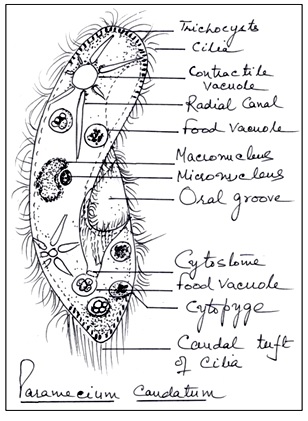 Trichocysts
Cilia
Contractile
Vacuole
Radial Canal
Food Vacuole
Macronucleus
Micronucleus
Oral groove
Cytostome
Food Vacuole
Cytopyge
Caudal tuft
of Cilia
Paramecium Caudatum